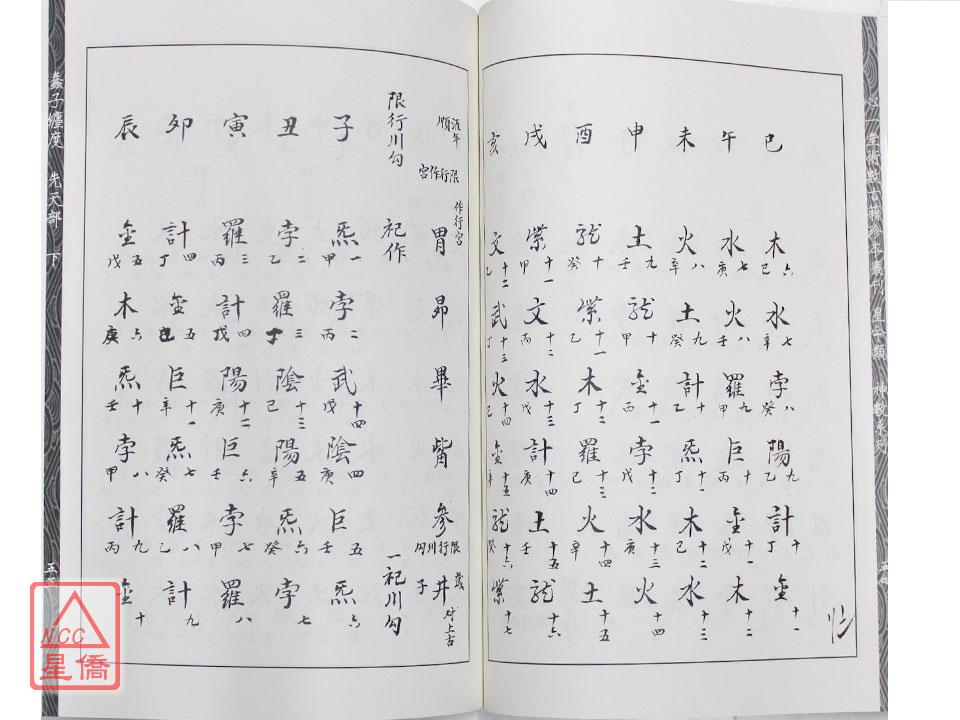 心一堂術數古籍珍本叢刊 星命類 神數系列
巳 木六己 水七辛 孛八癸 陽九乙 計十丁 金十一
午 水七庚 火八壬 羅九甲 巨十丙 金十一戊 木十二
未 火八辛 土九癸 計十乙 炁十一丁 木十二己 水十三
申 土九壬 龍十甲 金十一丙 孛十二戊 水十三庚 火十四
酉 龍十癸 紫十一乙 木十二丁 羅十三己 火十四辛 土十五
戌 紫十一甲 文十二丙 水十三戊 計十四庚 土十五壬 龍十六
亥 文十二乙 武十三丁 火十四己 金十五辛 龍十六癸 紫十七
流年順限行作宮 作行宮 胃 昴 畢 觜 參 限行川勾 井 子 对上古
限行川勾 祀作 一祀川勾
子 炁一甲 孛二丙 武十四戊 陰四庚 巨五壬 炁六
丑 孛二乙 羅三丁 陰十三己 陽五辛 炁六癸 孛七
寅 羅三丙 計四戊 陽十二庚 巨六壬 孛七甲 羅八
卯 計四丁 金五己 巨十一辛 炁七癸 羅八乙 計九
辰 金五戊 木六庚 炁十壬 孛八甲 計九丙 金十
蠢子纏度 先天部 下
NCC
星僑